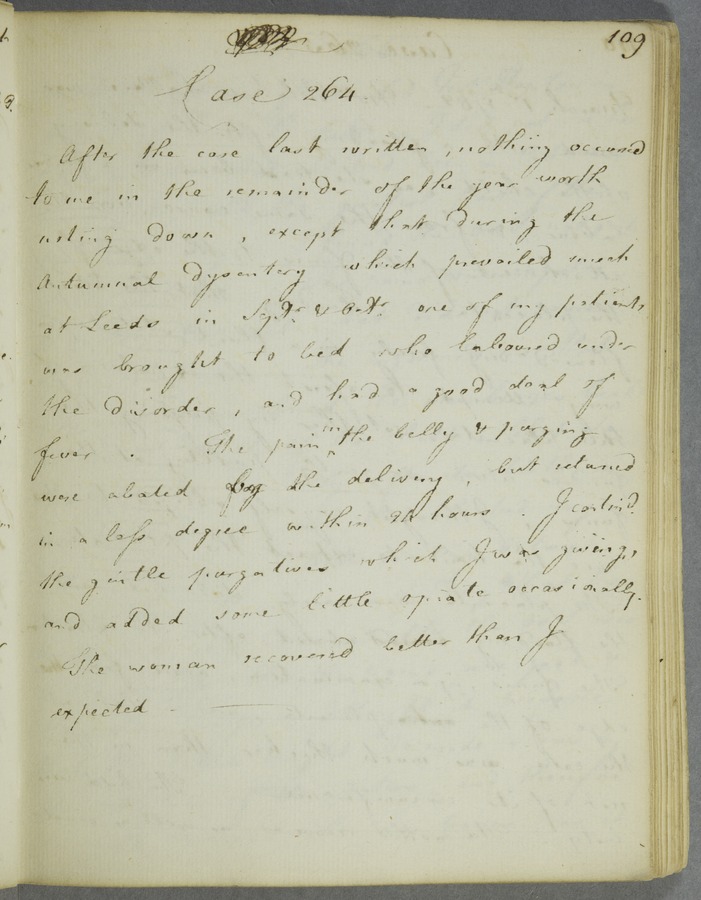 109
Case 264.
After the case last written, nothing occured
to me in the remainder of the year worth
noting down, except that during the
Autumnal Dysentery which prevailed much
at Leeds in Septr. & Octr. one of my patients
was brought to bed who laboured under
the disorder, and had a good deal of
fever. The pain in the belly & purging
were abated by the delivery, but returned
in a less degree within 24 hours. I contind.
the gentle purgatives which I was giving,
and added some little opiate occasionally.
The woman recovered better than I
expected.